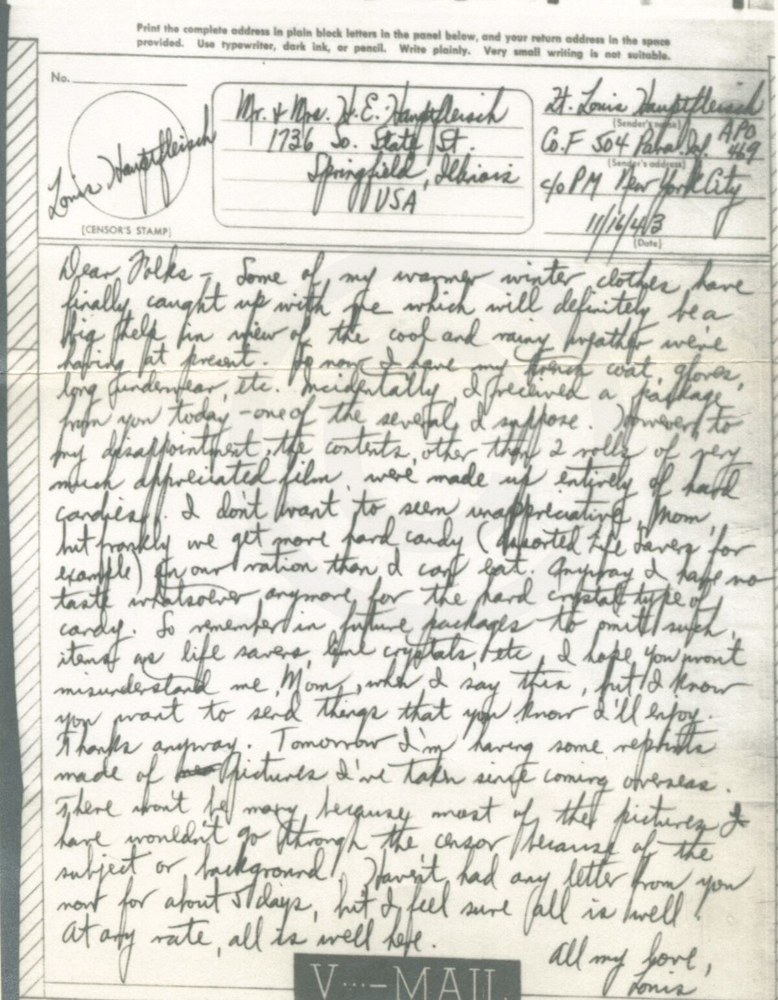 Print the complete address in plain block letters in the panel below, and your return address in the space
provided. Use typewriter, dark ink, or pencil. Write plainly. Very small writing is not suitable.
No.
Louis Hauptfleisch
[CENSOR'S STAMP]
Mr. & Mrs. H. E. Hauptfleisch
1736 So. State St.
Springfield, Illinois
USA
Lt. Louis Hauptfleisch
(Sender's name)
Co. F 504 Para. Inf. APO 469
(Sender's address)
c/o PM New York City
11/16/43
(Date)
Dear Folks - Some of my warmer winter clothes have
finally caught up with me which will definitely be a
big help in view of the cool and rainy weather we're
having at present. So now I have my trench coat, gloves,
long underwear, etc. Incidentally, I received a package
from you today - one of the several I suppose. However, to
my disappointment, the contents, other than 2 rolls of very
much appreciated film, were made up entirely of hard
candies. I don't want to seem unappreciative, Mom,
but frankly we get more hard candy (assorted Life Savers, for
example) in our ration than I can eat. Anyway I have no
taste whatsoever anymore for the hard crystal type of
candy. So remember in future packages to omit such
items as life savers, lime crystals, etc. I hope you won't
misunderstand me, Mom, when I say this, but I know
you want to send things that you know I'll enjoy.
Thanks anyway. Tomorrow I'm having some reprints
made of pictures I've taken since coming overseas.
There won't be many because most of the pictures I
have wouldn't go through the censor because of the
subject or background. Haven't had any letter from you
now for about 5 days, but I feel sure all is well.
At any rate, all is well here.
All my love,
Louis
V···-MAIL